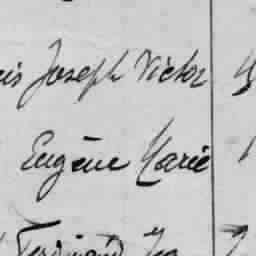 Joseph Victor
Eugène Marie
Ferdinand